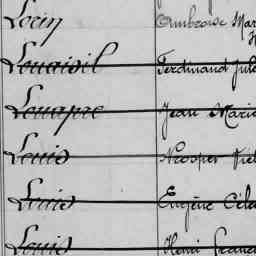 Loein Ambroise Mar
Louaisil Ferdinand Jule
Louapre Jean Marie
Louis Prosper Vict
Louis Eugène Céle
Louis Henri Franc